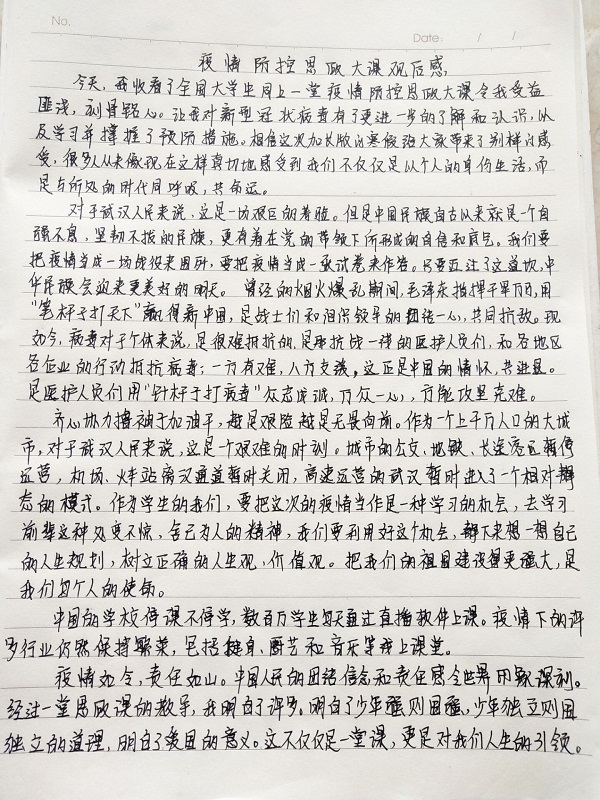 No.
Date: / /
疫情防控思政大课观后感
今天,我收看了全国大学生同上一堂疫情防控思政大课令我受益
匪浅,刻骨铭心。让我对新型冠状病毒有了更进一步的了解和认识,以
及学习并掌握了预防措施。相信这次加长版的寒假给大家带来了别样的感
受,很多人从来像现在这样真切地感受到我们不仅仅是以个人的身份生活,而
是与所处的时代同呼吸,共命运。
对于武汉人民来说,这是一场艰巨的考验。但是中国民族自古以来就是一个自
强不息,坚韧不拔的民族,更有着在党的带领下所形成的自信和底气。我们要
把疫情当成一场战役来困所,要把疫情当成一张试卷来作答。只要迈过了这道坎,中
华民族会迎来更美好的明天。曾经的烟火爆乱期间,毛泽东指挥千军万马,用
“笔杆子打天下”赢得新中国,是战士们和组织领导的团结一心,共同抗敌。现
如今,病毒对于个体来说,是很难抵抗的,是那抗战一线的医护人员们,和各地区
各企业的行动抵抗病毒;一方有难,八方支援,这正是中国的情怀,共进退。
是医护人员们用“针杆子打病毒”众志成诚,万众一心,方能攻坚克难。
齐心协力撸袖子加油干,越是艰险越是无畏向前。作为一个上千万人口的大城
市,对于武汉人民来说,这是一个艰难的时刻。城市的公交、地铁、长途客运暂停
运营,机场、火车站离汉通道暂时关闭,高速运营的武汉暂时进入了一个相对静
态的模式。作为学生的我们,要把这次的疫情当作是一种学习的机会,去学习
前辈这种处变不惊,舍己为人的精神,我们要利用好这个机会,静下来想一想自己
的人生规划,树立正确的人生观、价值观。把我们的祖国建设得更强大,是
我们每个人的使命。
中国的学校停课不停学,数百万学生每天通过直播软件上课。疫情下的许
多行业仍然保持繁荣,包括健身、厨艺和音乐等线上课堂。
疫情如令,责任如山。中国人民的团结信念和责任感令世界印象深刻。
经过一堂思政课的教导,我明白了许多。明白了少年强则国强,少年独立则国
独立的道理,明白了爱国的意义。这不仅仅是一堂课,更是对我们人生的引领。